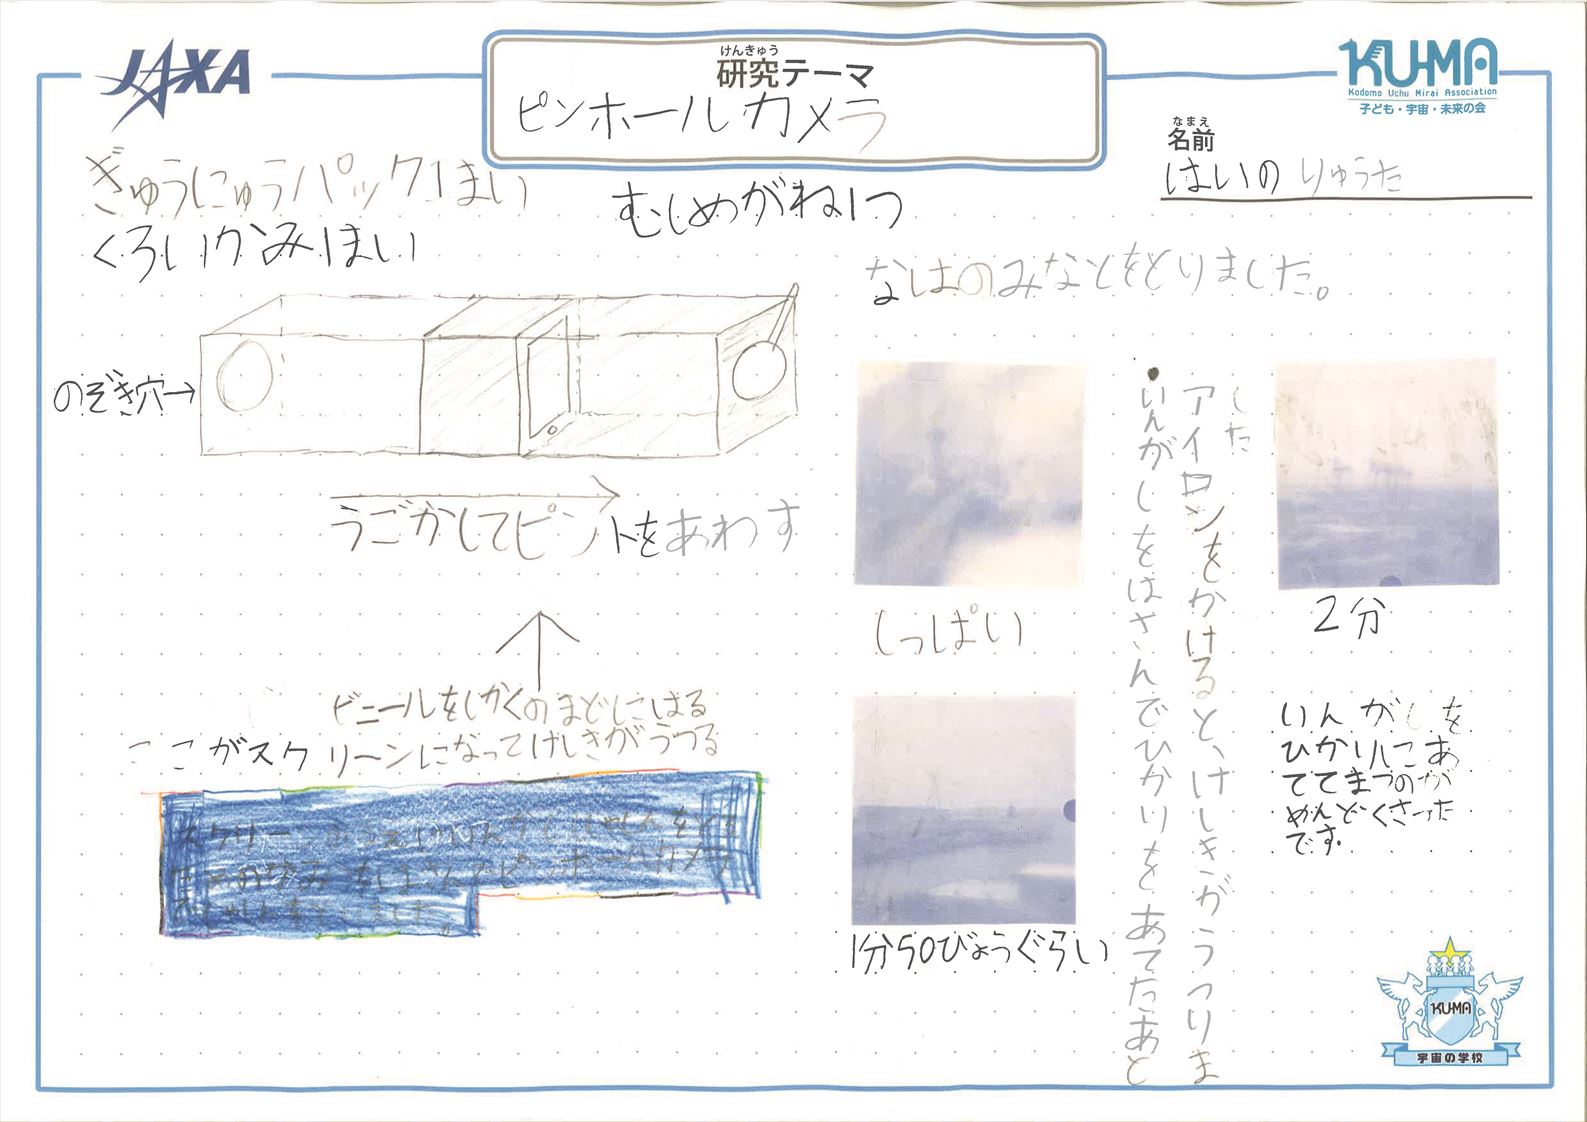 JAXA
けんきゅう
研究テーマ
ピンホールカメラ
KUMA
Kodomo Uchu Mirai Association
子ども・宇宙・未来の会
なまえ
名前
はいの りゅうた
ぎゅうにゅうパック1まい
くろいかみ1まい
むしめがね1つ
のぞき穴→
うごかしてピントをあわす
ビニールをしかくのまどにはる
ここがスクリーンになってけしきがうつる
なはのみなとをとりました。
しっぱい
1分50びょうぐらい
・いんがしをはさんでひかりをあてたあと
アイロンをかけると、けしきがうつりま
した
2分
いんがしを
ひかりにあ
ててまつのが
めんどくさった
です。
KUMA
宇宙の学校